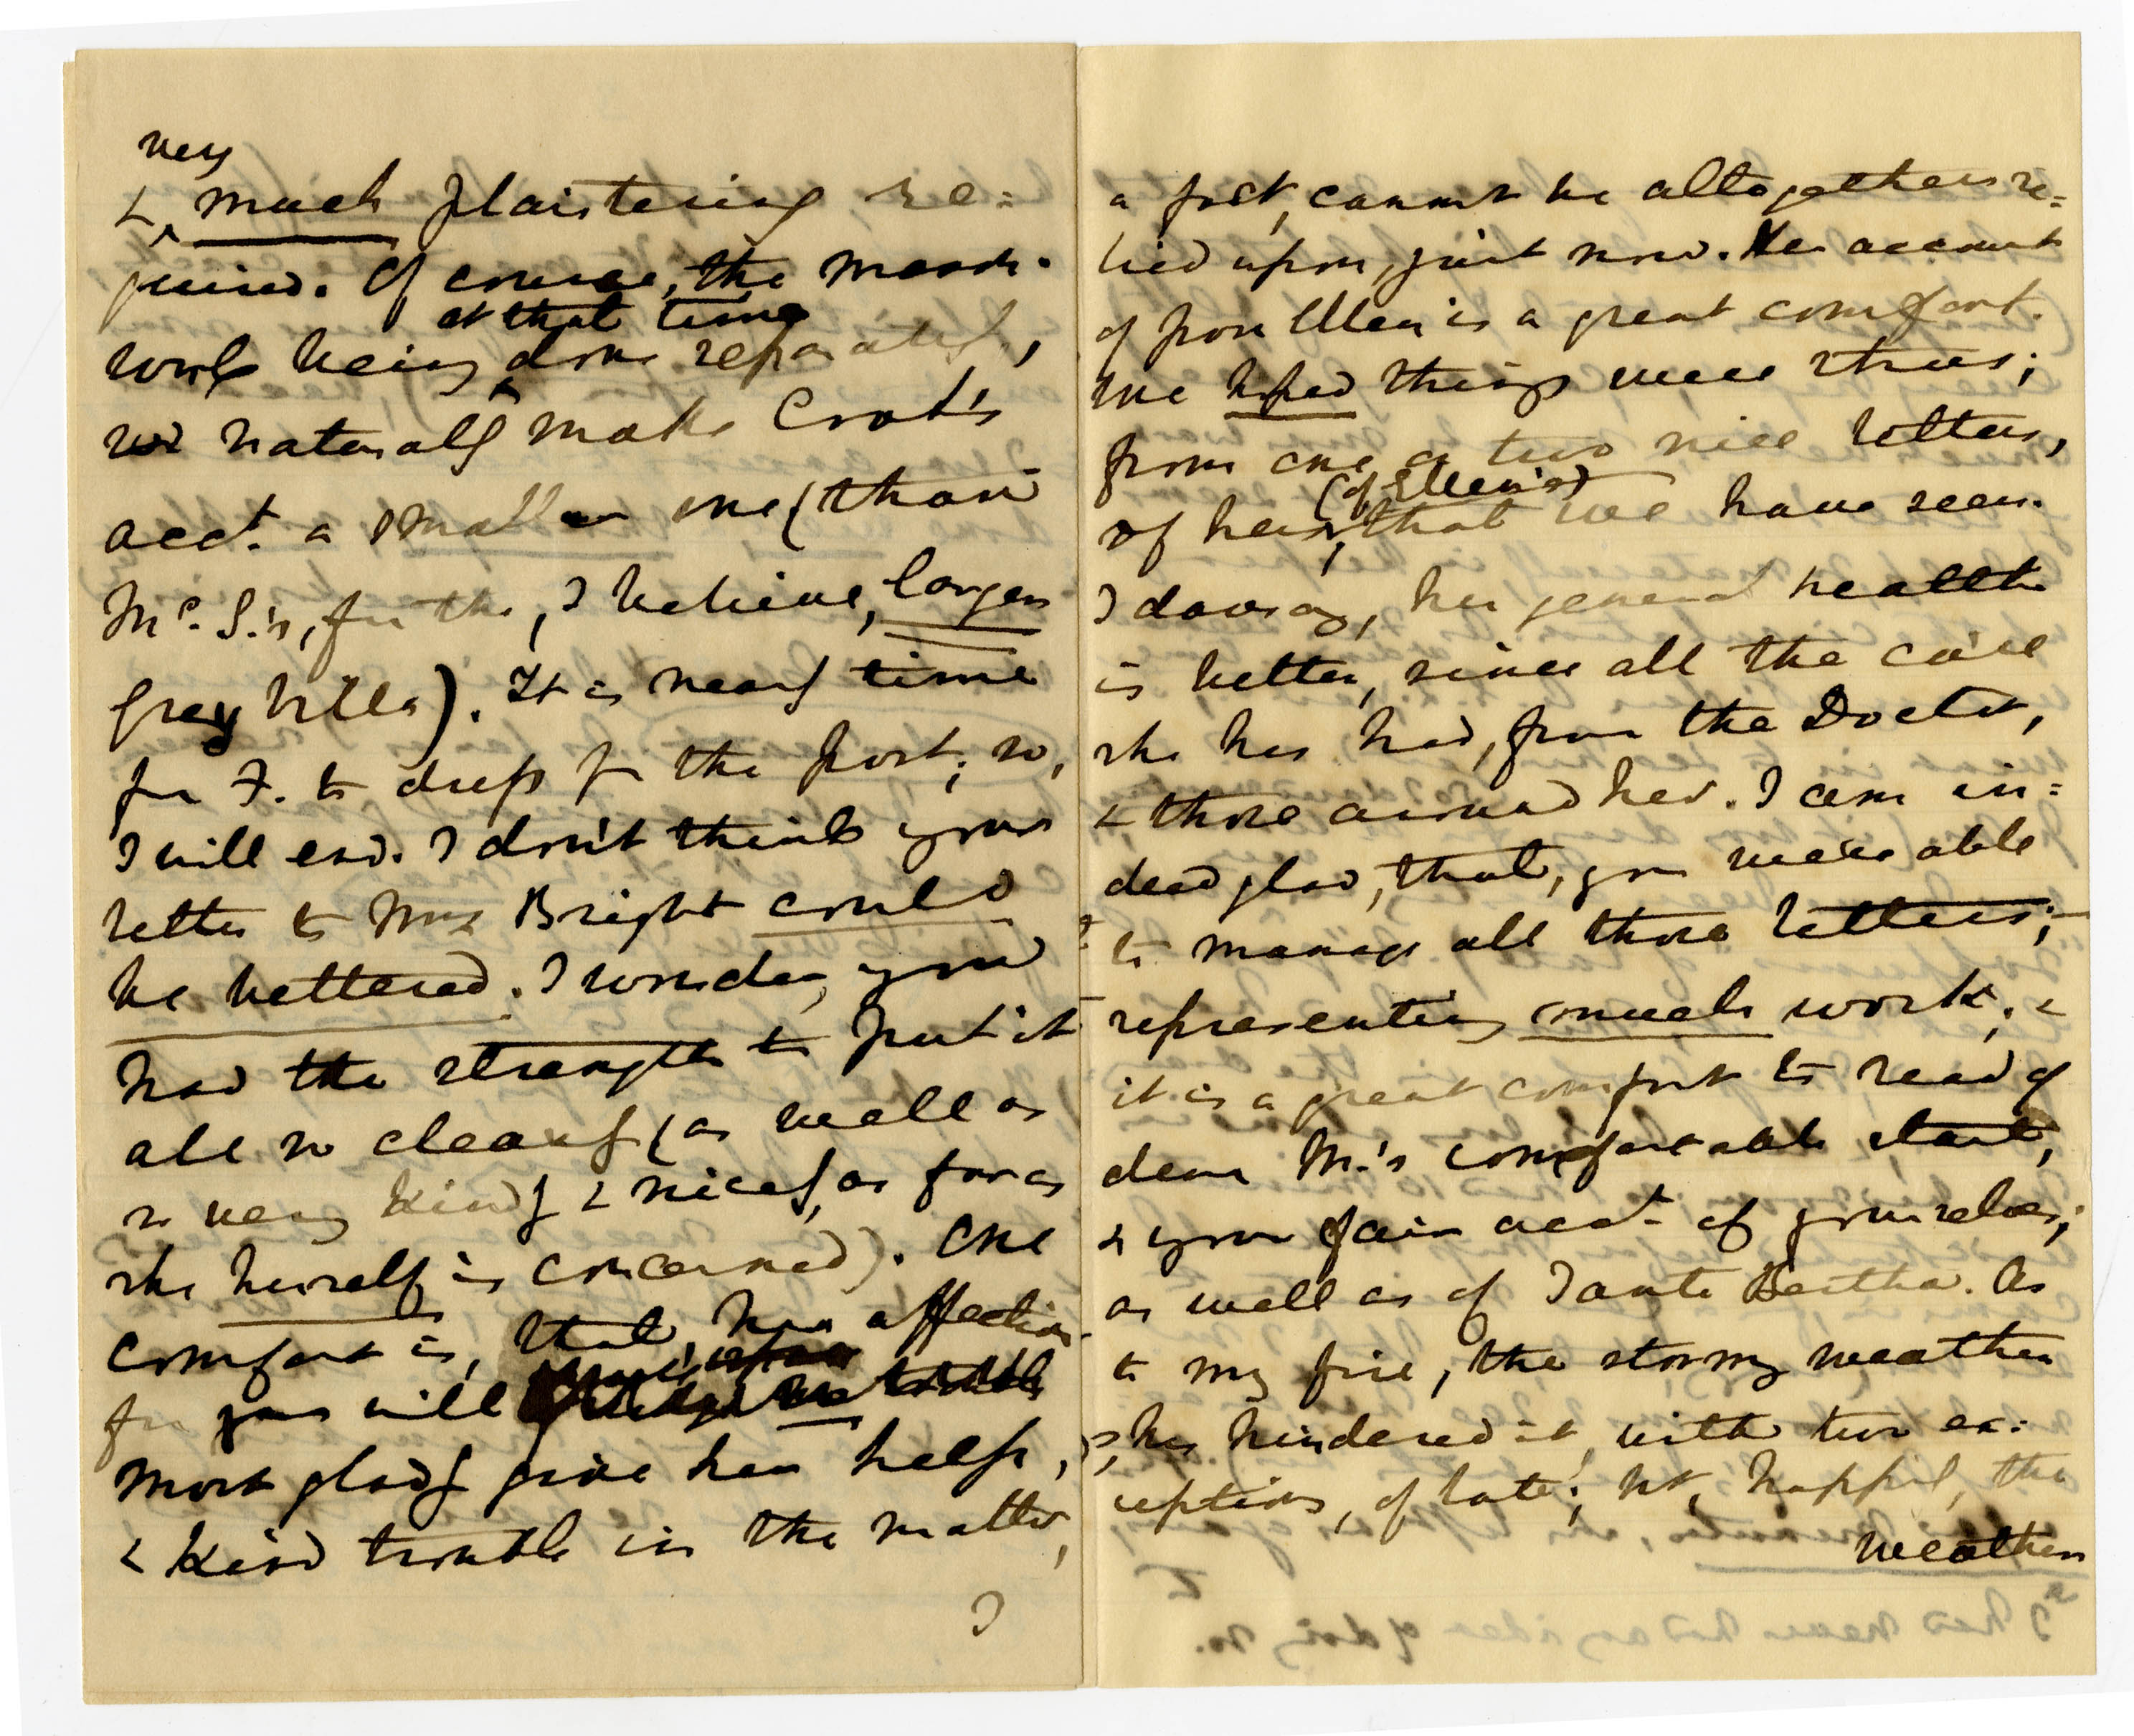 very
& much plaistering re=
quired. Of course, the mason-
at that time
work being done separately,
wd naturally make Croot's
acct. a smaller one (than
Mr. S.'s, for the, I believe, larger
Grey Villa). It is nearly time
for F. to dress for the post; so,
I will end. I don't think your
letter to Mrs Bright could
be bettered. I wonder, you
had the strength to put it
all so clearly (as well as
so very kindly & nicely, as far as
she herself is concerned). One
comfort is, that, her affection
for you will
most gladly give her help,
& kind trouble in the matter,
I
a fact, cannot be altogether re=
lied upon, just now. Her account
of poor Ellen is a great comfort.
We hoped things were thus;
from one or two nice letters,
(of Ellen's)
of hers, that we have seen.
I daresay, her general health
is better, since all the care
she has had, from the Doctor,
& those around her. I am in=
deed glad, that, you were able
to manage all those letters;
representing much work; &
it is a great comfort to read of
dear M.'s comfortable start,
& your fair acct. of yourselves;
as well as of Tante Bertha. As
to my fire, the stormy weather
has hindered it, with two ex:
ceptions, of late; but, happily, the
weather